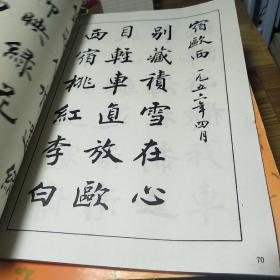 宿歐西 一九五六年四月
別藏積雪在心
目輕車直放歐
西宿桃紅李白
映綠
70